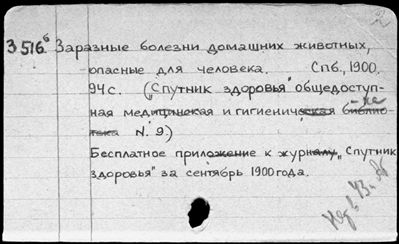 З 516⁶ Заразные болезни домашних животных,
опасные для человека. Спб., 1900.
94с. („Спутник здоровья" общедоступ-
ная медицинская и гигиеническая библио-
тека N. 9)
Бесплатное приложение к журналу „Спутник
здоровья" за сентябрь 1900 года.